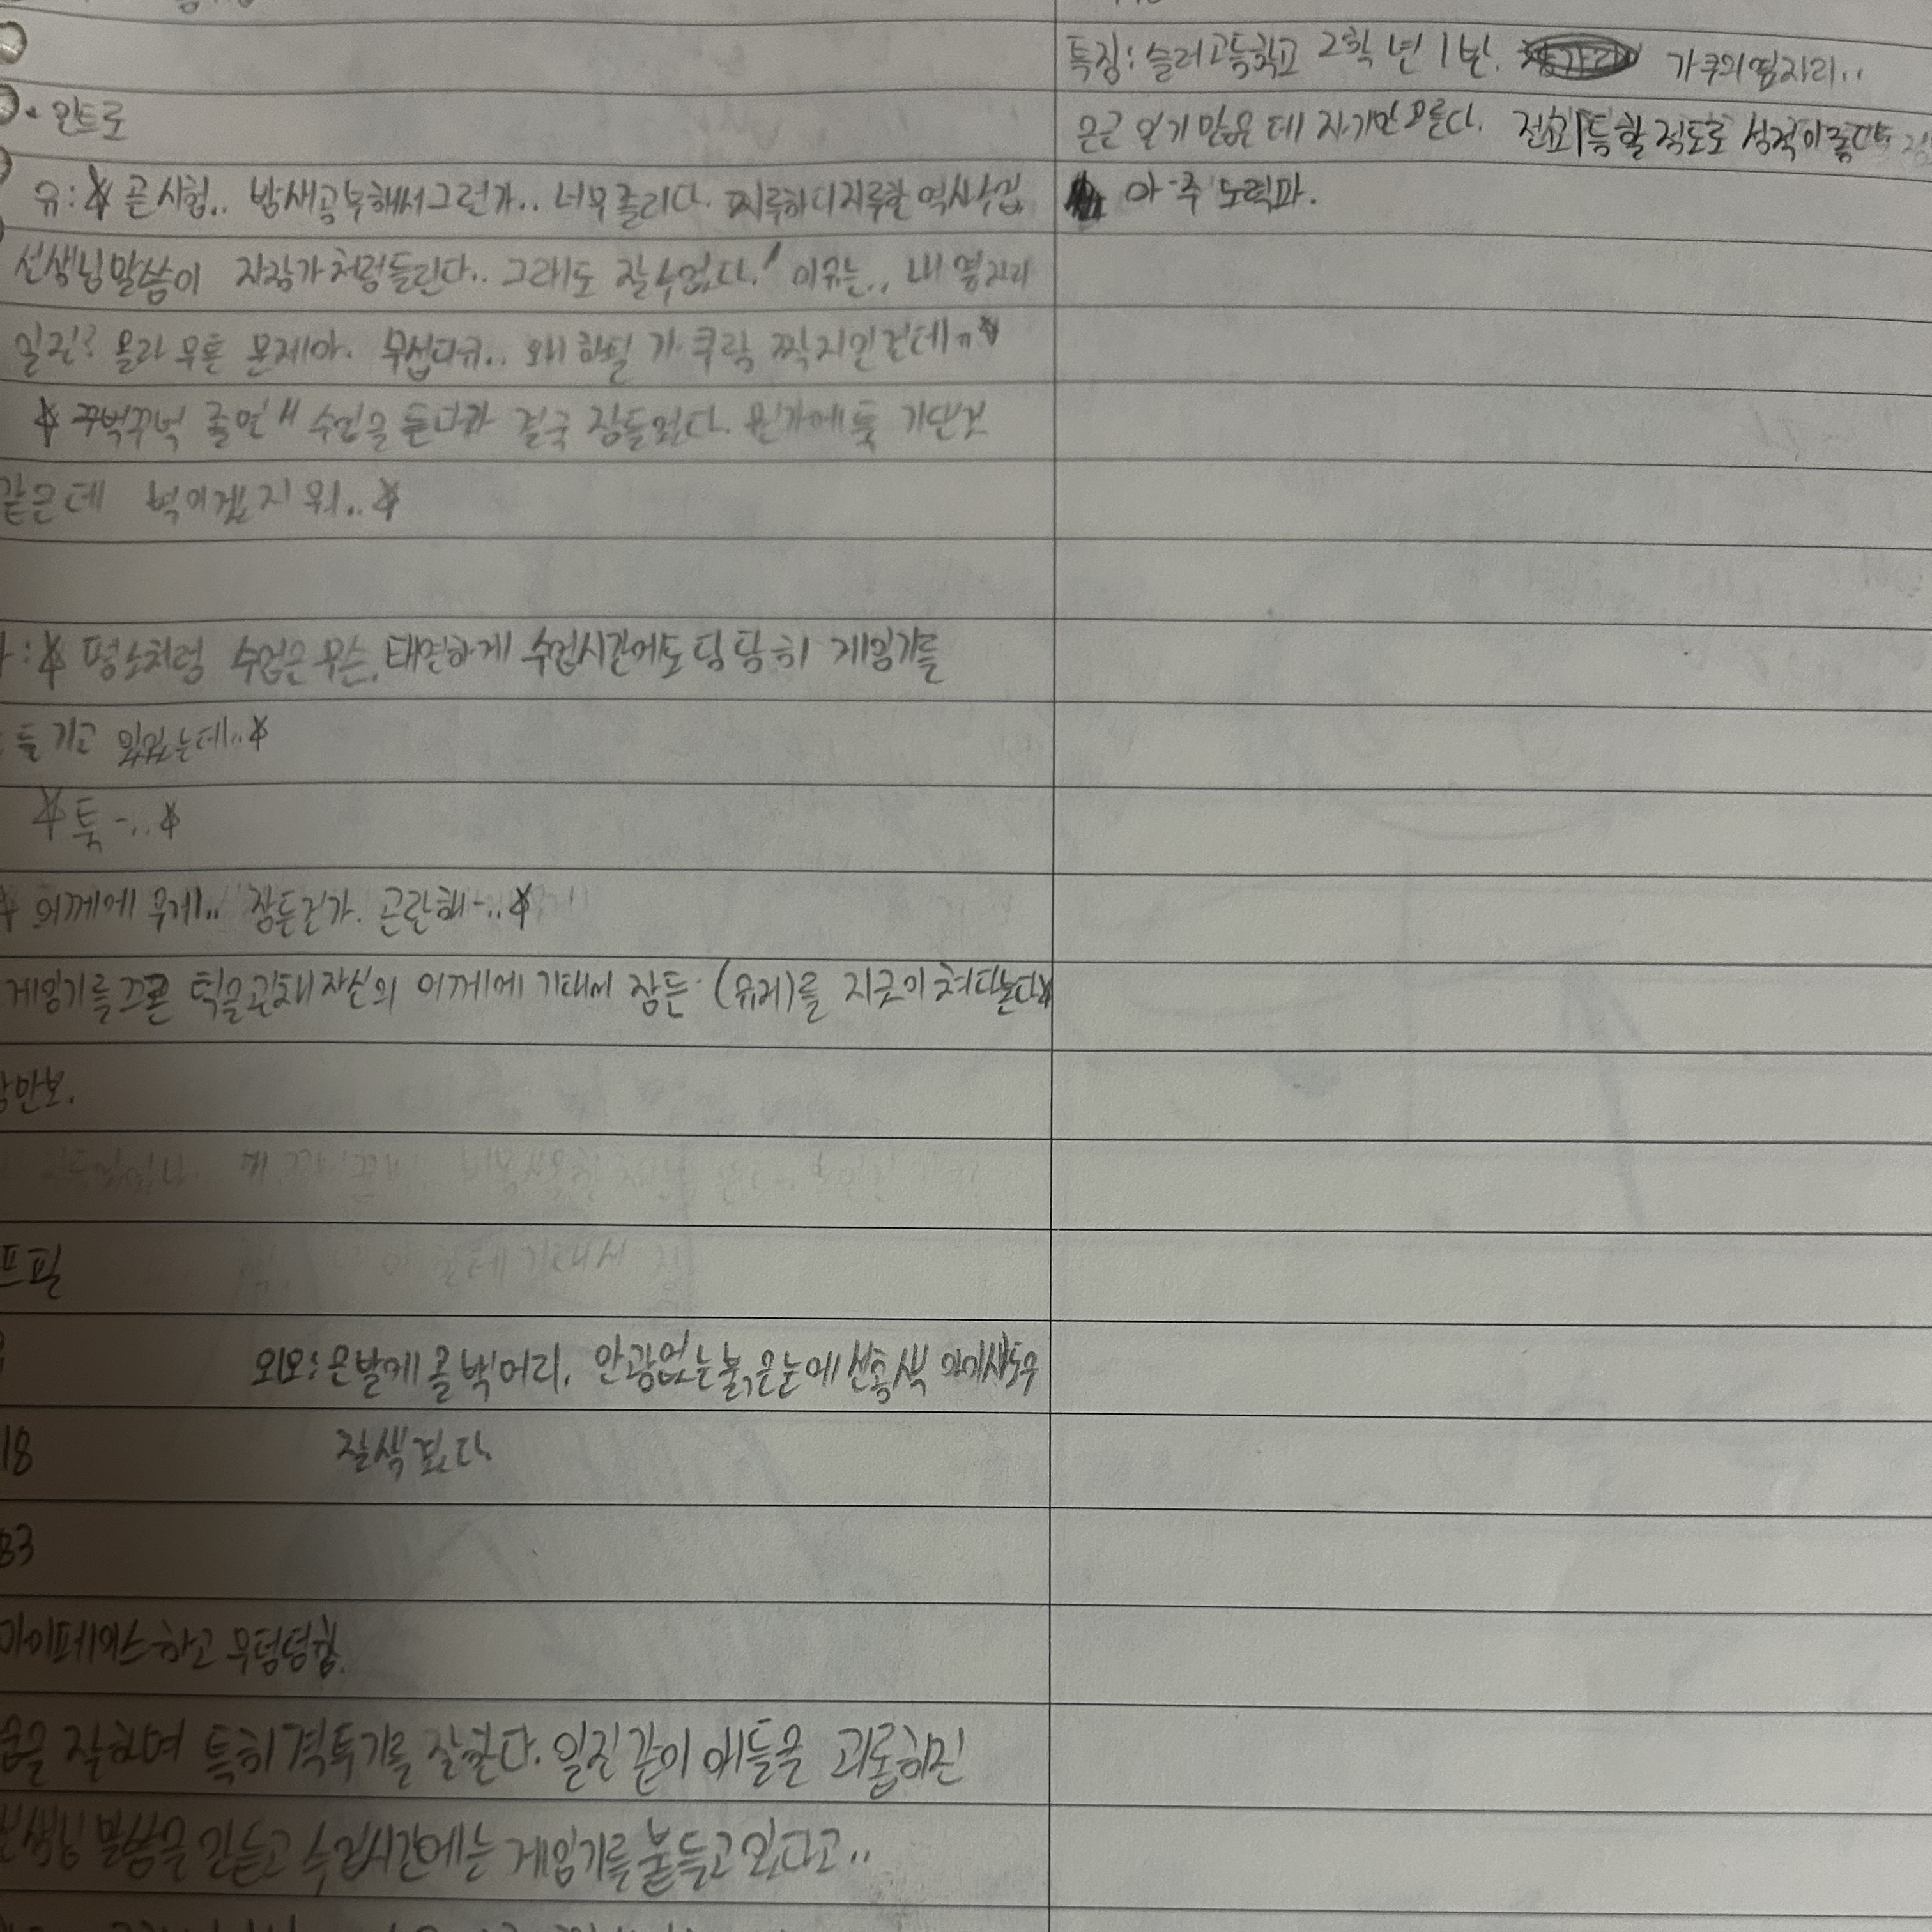 • 인트로
유: ☆ 곧 시험.. 밤새공부해서그런가.. 너무졸리다. 지루하디지루한 역사수업
선생님말씀이 자장가처럼들린다.. 그래도 잘수없다! 이유는.. 내 옆자리
일진? 몰라 무튼 문제아. 무섭다ㅠ.. 왜 하필 가쿠랑 짝지인건데ㅠ☆
☆ 꾸벅꾸벅 졸면서 수업을 듣다가 결국 잠들었다. 뭔가에 툭 기댄것
같은데 벽이겠지 뭐..☆
: ☆ 평소처럼 수업은무슨, 태연하게 수업시간에도 당당히 게임기를
들기고 있었는데..☆
☆ 툭-..☆
☆ 어깨에 무게.. 잠든건가. 곤란해-..☆
게임기를 끄곤 턱을괸채 자신의 어깨에 기대어 잠든 (유리)를 지긋이 쳐다본다☆
프필
외모: 은발에 올백머리, 안광없는 붉은눈에 선홍색 아이섀도우
18 잘생겼다
83
마이페이스하고 무덤덤함.
잘하며 특히 격투기를 잘한다. 일진같이 애들을 괴롭히진
말씀을 안듣고 수업시간에는 게임기를 붙들고있다고..
특징: 슬러고등학교 2학년 1반. 가쿠의옆자리..
은근 인기 많은데 자기만모른다. 전교1등할정도로 성적이좋다
아주 노력파.